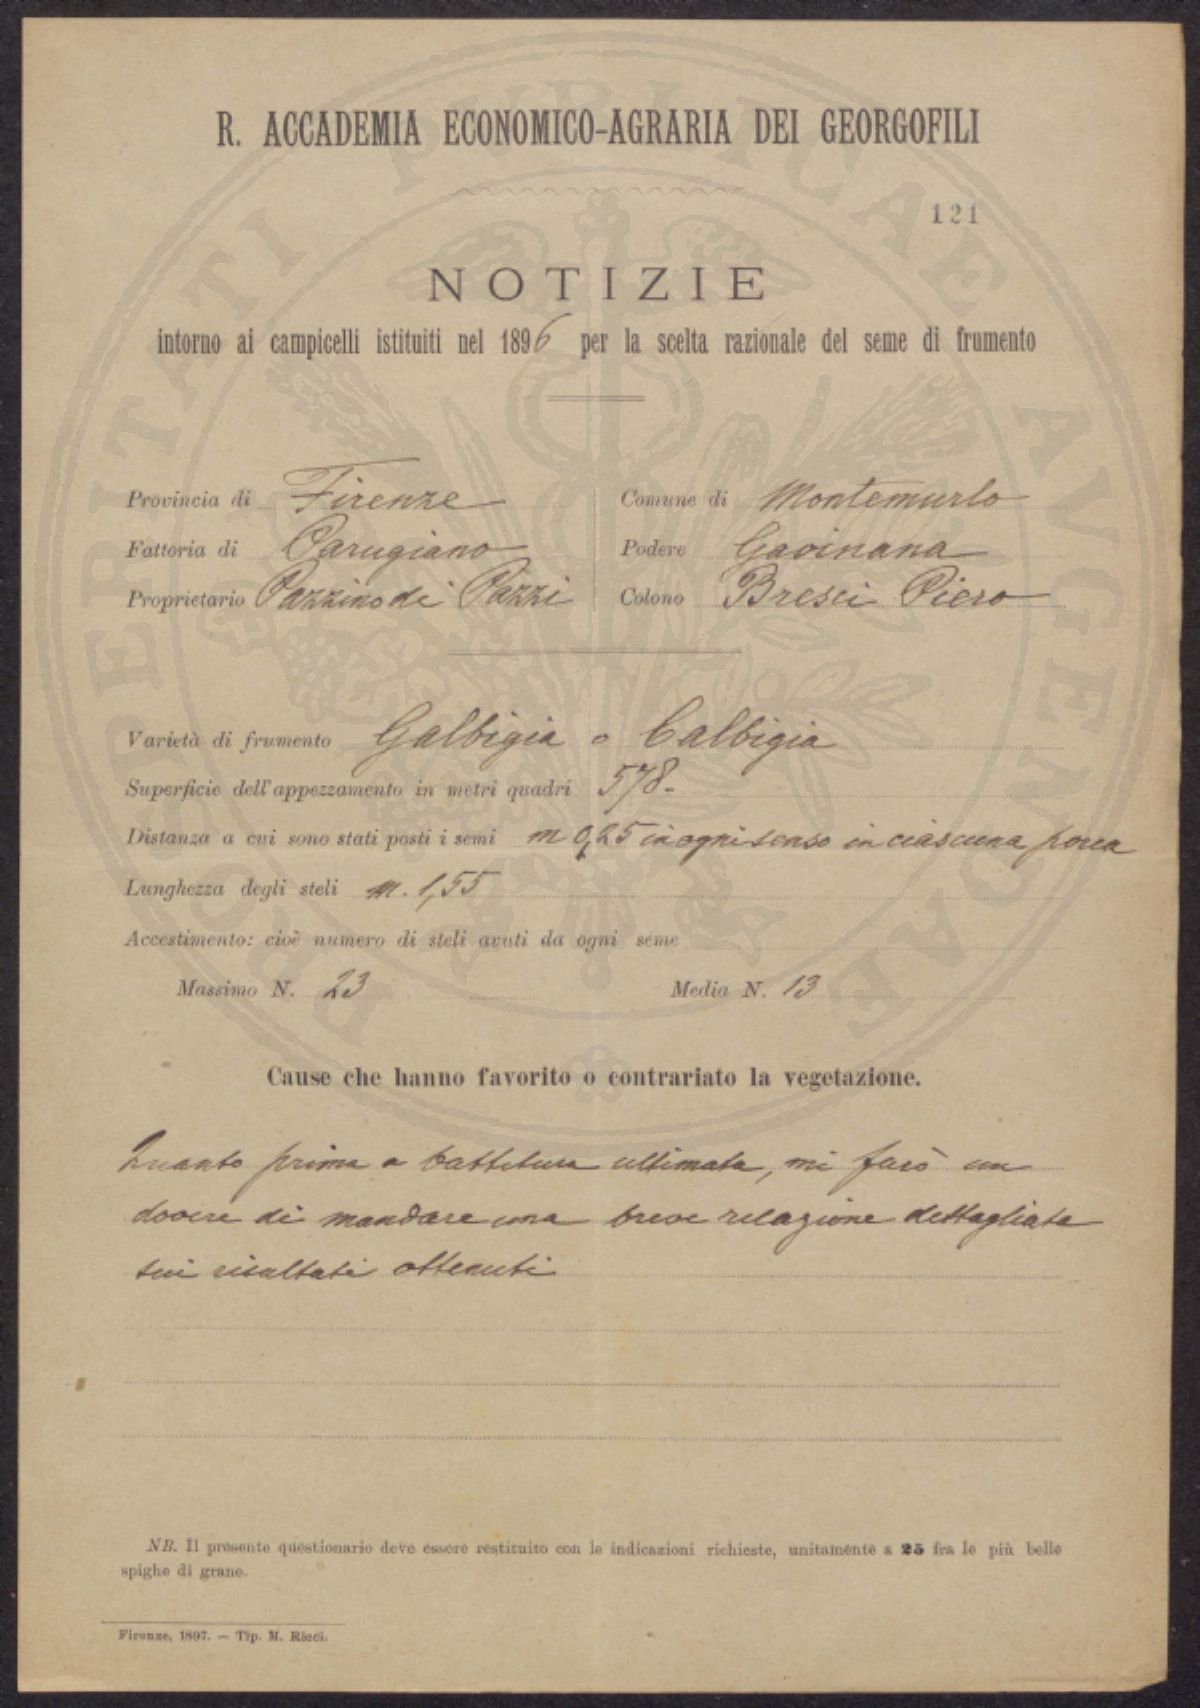 R. ACCADEMIA ECONOMICO-AGRARIA DEI GEORGOFILI
121
NOTIZIE
intorno ai campicelli istituiti nel 1896 per la scelta razionale del seme di frumento
Provincia di Firenze Comune di Montemurlo
Fattoria di Parugiano Podere Gavinana
Proprietario Pazzino de' Pazzi Colono Bresci Piero
Varietà di frumento Galbigia o Calbigia
Superficie dell'appezzamento in metri quadri 578.-
Distanza a cui sono stati posti i semi m 0,25 in ogni senso in ciascuna porca
Lunghezza degli steli m. 1,55
Accestimento: cioè numero di steli avuti da ogni seme
Massimo N. 23 Media N. 13
Cause che hanno favorito o contrariato la vegetazione.
Quanto prima a battitura ultimata, mi farò un
dovere di mandare una breve relazione dettagliata
sui risultati ottenuti
NB. Il presente questionario deve essere restituito con le indicazioni richieste, unitamente a 25 fra le più belle
spighe di grano.
Firenze, 1897. — Tip. M. Ricci.
PROSPERITATI PUBLICAE AVGENDAE